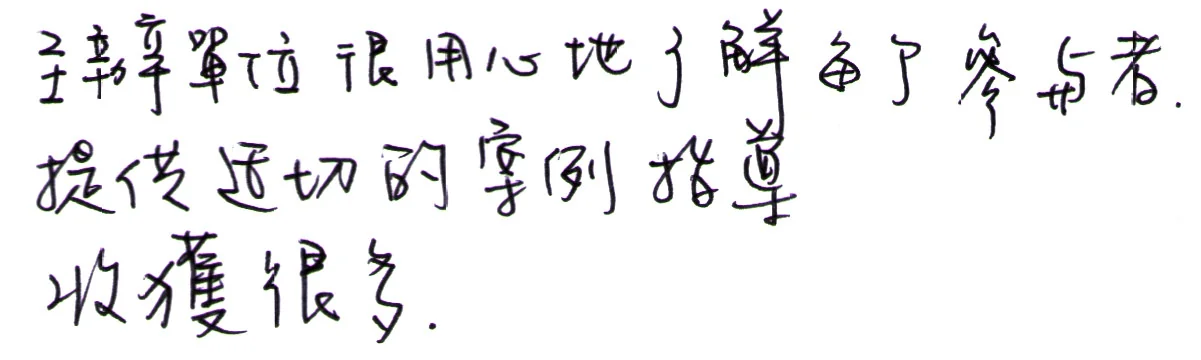 主辦單位很用心地了解每个參与者.
提供适切的案例指導
收獲很多.